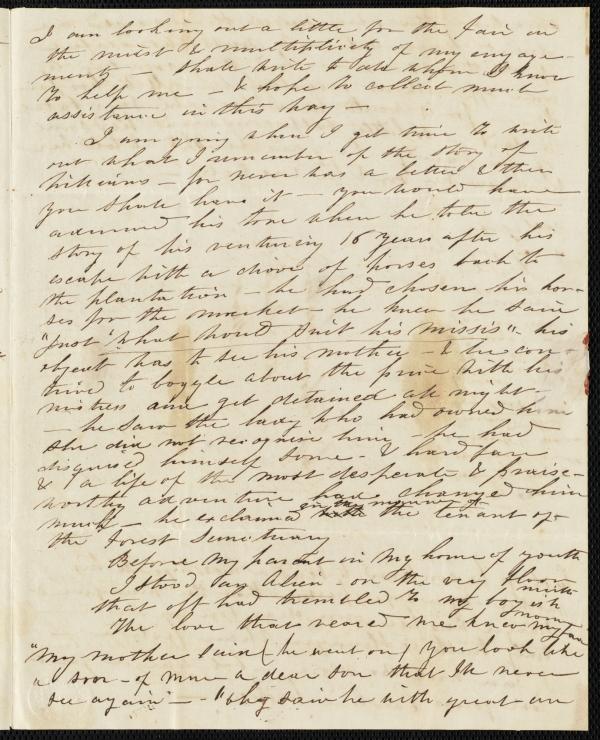 I am looking out a little for the Fair in
the midst & multiplicity of my engage-
ments – shall write to all whom I know
to help me – & hope to collect much
assistance in this way –
I am going when I get time to write
out what I remember of the story of
Williams – for never was a better & then
you shall have it – you would have
admired his tone when he told the
story of his venturing 16 years after his
escape with a drove of horses back to
the plantation – he had chosen his hor-
ses for the market – he knew he said
"Just what would suit his missis" – his
object was to see his mother – & he con-
trived to boggle about the price with his
mistress and get detained all night
– he saw the lady who had owned him
she did not recognise him – he had
disguised himself some – & hard fare
& a life of the most desperate & praise-
worthy adventure had changed him
much – he exclaimed in the manner of the tenant of
the Forest Sanctuary
Before my parent in my home of youth
I stood an Alien – on the very floor
that oft had trembled to my boyish mirth
The love that reared me knew my face
"My mother said (he went on) you look like
a son – of mine a dear son that I'll never
see again" – "Why saw he with great